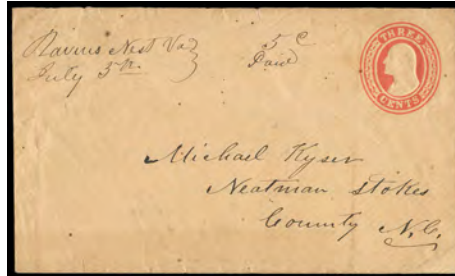 Ravins Nest Va
July 5th
5 C
Paid
THREE
CENTS
Michael Kyser
Neatman Stokes
County N.C.